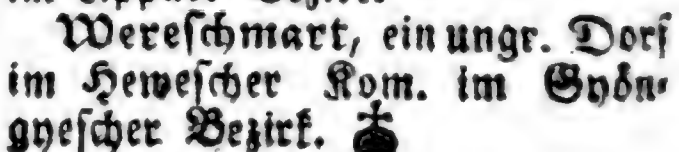 Wereſchmart, ein ungr. Dorf
im Heweſcher Kom. im Gyön⸗
gyeſcher Bezirk. ♁